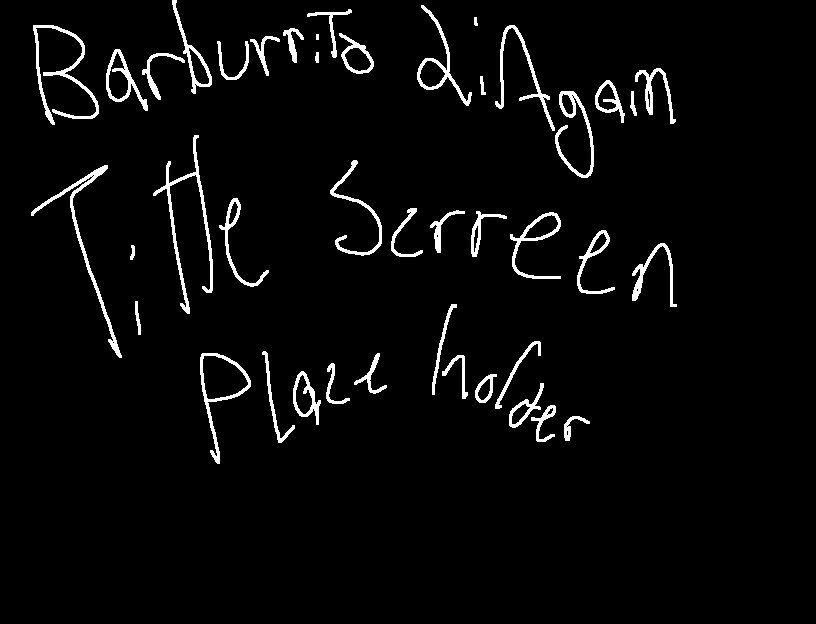 Barburrito 2: Again
Title Screen
Place holder